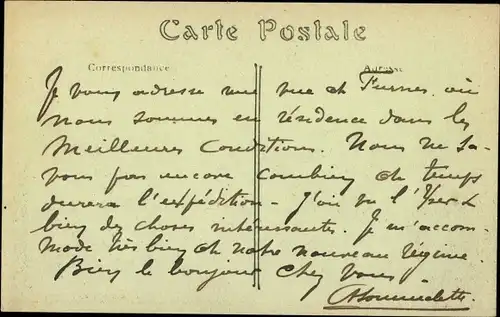 Carte Postale
Correspondance Adresse
Je vous adresse une vue de Furnes où
nous sommes en résidence dans les
Meilleures Conditions. Nous ne sa-
vons pas encore combien de temps
durera l'expédition - J'ai vu l'Yser &
bien des choses intéressantes. Je m'accom-
mode très bien de notre nouveau régime.
Bien le bonjour chez vous -